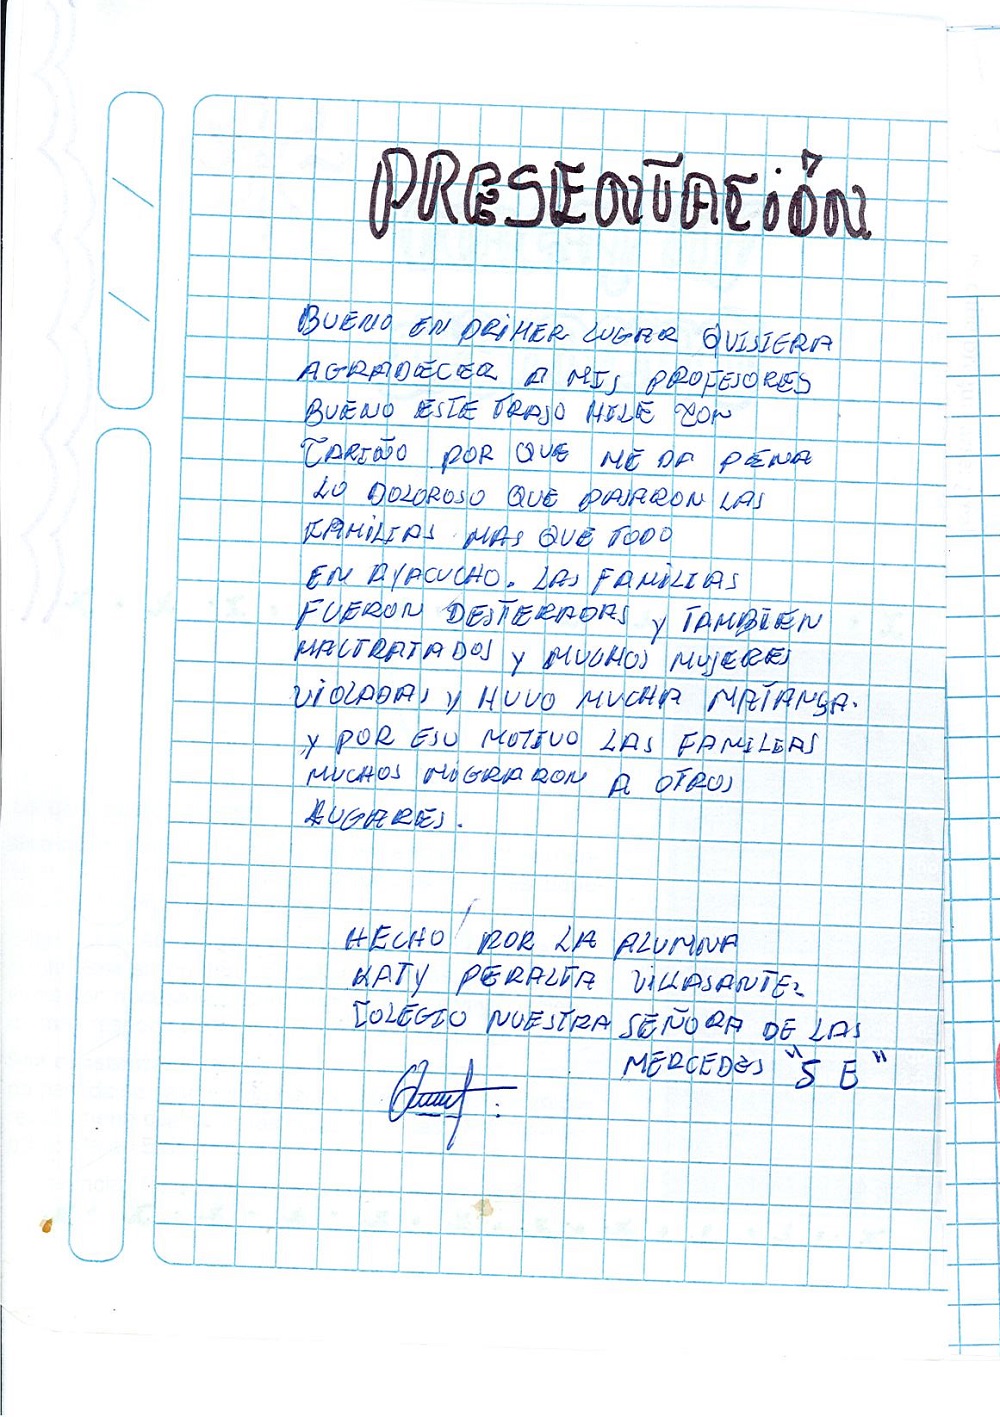 PRESENTACIÓN
BUENO EN PRIMER LUGAR QUISIERA
AGRADECER A MIS PROFESORES
BUENO ESTE TRAJO HICE CON
CARIÑO POR QUE ME DA PENA
LO DOLOROSO QUE PASARON LAS
FAMILIAS MAS QUE TODO
EN AYACUCHO. LAS FAMILIAS
FUERON DESTERADAS y TAMBIEN
MALTRATADOS y MUCHOS MUJERES
VIOLADAS y HUVO MUCHA MATANSA.
y POR ESO MOTIVO LAS FAMILIAS
MUCHOS MIGRARON A OTROS
LUGARES.
HECHO POR LA ALUMNA
KATY PERALTA VILLASANTE.
COLEGIO NUESTRA SEÑORA DE LAS
MERCEDES "5 E"